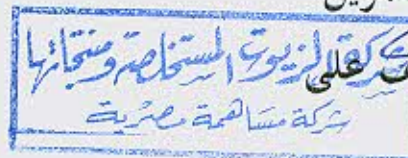 شركة الزيوت المستخلصة ومنتجاتها
على
شركة مساهمة مصرية